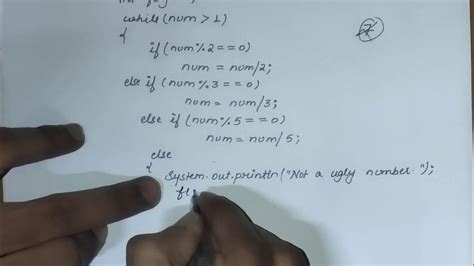 while (num > 1)
{
if (num % 2 == 0)
num = num/2;
else if (num % 3 == 0)
num = num/3;
else if (num % 5 == 0)
num = num/5;
else
{ System.out.println("Not a ugly number.");
fl